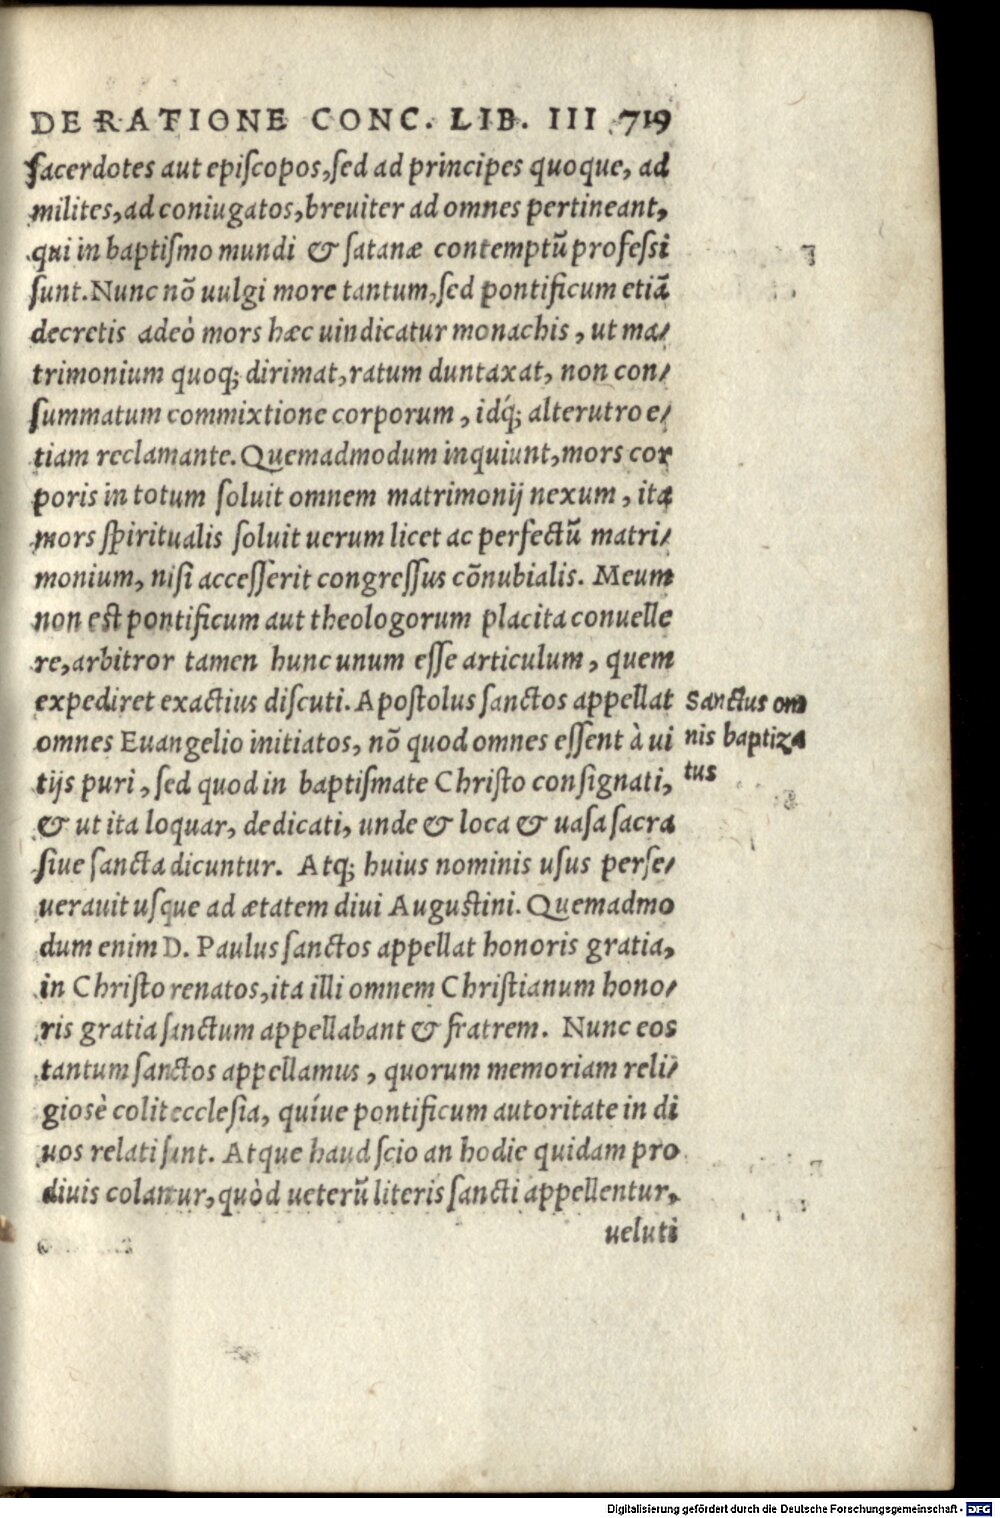 DE RATIONE CONC. LIB. III 719
ſacerdotes aut epiſcopos, ſed ad principes quoque, ad
milites, ad coniugatos, breuiter ad omnes pertineant,
qui in baptiſmo mundi & ſatanæ contemptũ profeſsi
ſunt. Nunc nõ uulgi more tantum, ſed pontificum etiã
decretis adeò mors hæc uindicatur monachis, ut ma⸗
trimonium quoq; dirimat, ratum duntaxat, non con⸗
ſummatum commixtione corporum, idq́; alterutro e⸗
tiam reclamante. Quemadmodum inquiunt, mors cor
poris in totum ſoluit omnem matrimonij nexum, ita
mors ſpiritualis ſoluit uerum licet ac perfectũ matri⸗
monium, niſi acceſſerit congreſſus cõnubialis. Meum
non eſt pontificum aut theologorum placita conuelle
re, arbitror tamen hunc unum eſſe articulum, quem
expediret exactius diſcuti. Apoſtolus ſanctos appellat
omnes Euangelio initiatos, nõ quod omnes eſſent à ui
tijs puri, ſed quod in baptiſmate Chriſto conſignati,
& ut ita loquar, dedicati, unde & loca & uaſa ſacra
ſiue ſancta dicuntur. Atq; huius nominis uſus perſe⸗
uerauit uſque ad ætatem diui Auguſtini. Quemadmo
dum enim D. Paulus ſanctos appellat honoris gratia,
in Chriſto renatos, ita illi omnem Chriſtianum hono⸗
ris gratia ſanctum appellabant & fratrem. Nunc eos
tantum ſanctos appellamus, quorum memoriam reli⸗
gioſè colit eccleſia, quíue pontificum autoritate in di
uos relati ſunt. Atque haud ſcio an hodie quidam pro
diuis colantur, quòd ueterũ literis ſancti appellentur,
ueluti
Sanctus om
nis baptiza
tus
Digitalisierung gefördert durch die Deutsche Forschungsgemeinschaft - DFG